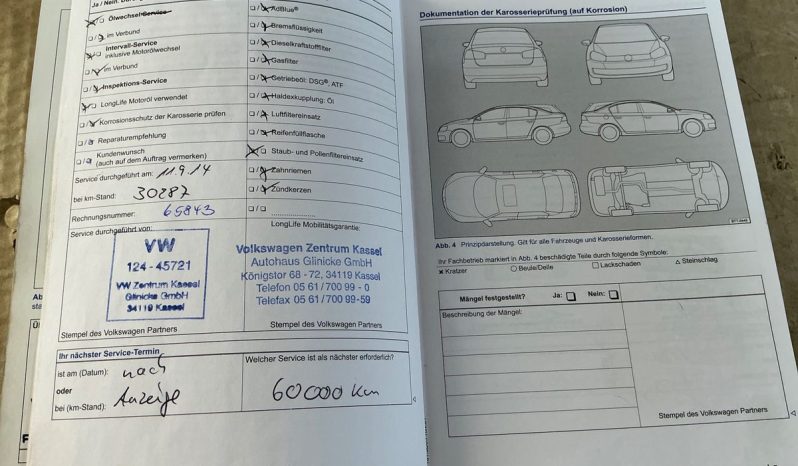 Ja / Nein
Ölwechsel-Service
im Verbund
Intervall-Service
inklusive Motorölwechsel
im Verbund
Inspektions-Service
LongLife Motoröl verwendet
Korrosionsschutz der Karosserie prüfen
Reparaturempfehlung
Kundenwunsch
(auch auf dem Auftrag vermerken)
Service durchgeführt am: 11.9.14
bei km-Stand: 30287
Rechnungsnummer: 65843
Service durchgeführt von:
VW
124-45721
VW Zentrum Kassel
Glinicke GmbH
34119 Kassel
Stempel des Volkswagen Partners
AdBlue®
Bremsflüssigkeit
Dieselkraftstofffilter
Gasfilter
Getriebeöl: DSG®, ATF
Haldexkupplung: Öl
Luftfiltereinsatz
Reifenfüllflasche
Staub- und Pollenfiltereinsatz
Zahnriemen
Zündkerzen
LongLife Mobilitätsgarantie:
Volkswagen Zentrum Kassel
Autohaus Glinicke GmbH
Königstor 68 - 72, 34119 Kassel
Telefon 05 61 / 700 99 - 0
Telefax 05 61 / 700 99-59
Stempel des Volkswagen Partners
Ihr nächster Service-Termin
ist am (Datum): nach
oder
bei (km-Stand): Anzeige
Welcher Service ist als nächster erforderlich?
60000 km
Dokumentation der Karosserieprüfung (auf Korrosion)
Abb. 4 Prinzipdarstellung. Gilt für alle Fahrzeuge und Karosserieformen.
Ihr Fachbetrieb markiert in Abb. 4 beschädigte Teile durch folgende Symbole:
× Kratzer ○ Beule/Delle □ Lackschaden △ Steinschlag
Mängel festgestellt? Ja: Nein:
Beschreibung der Mängel:
Stempel des Volkswagen Partners